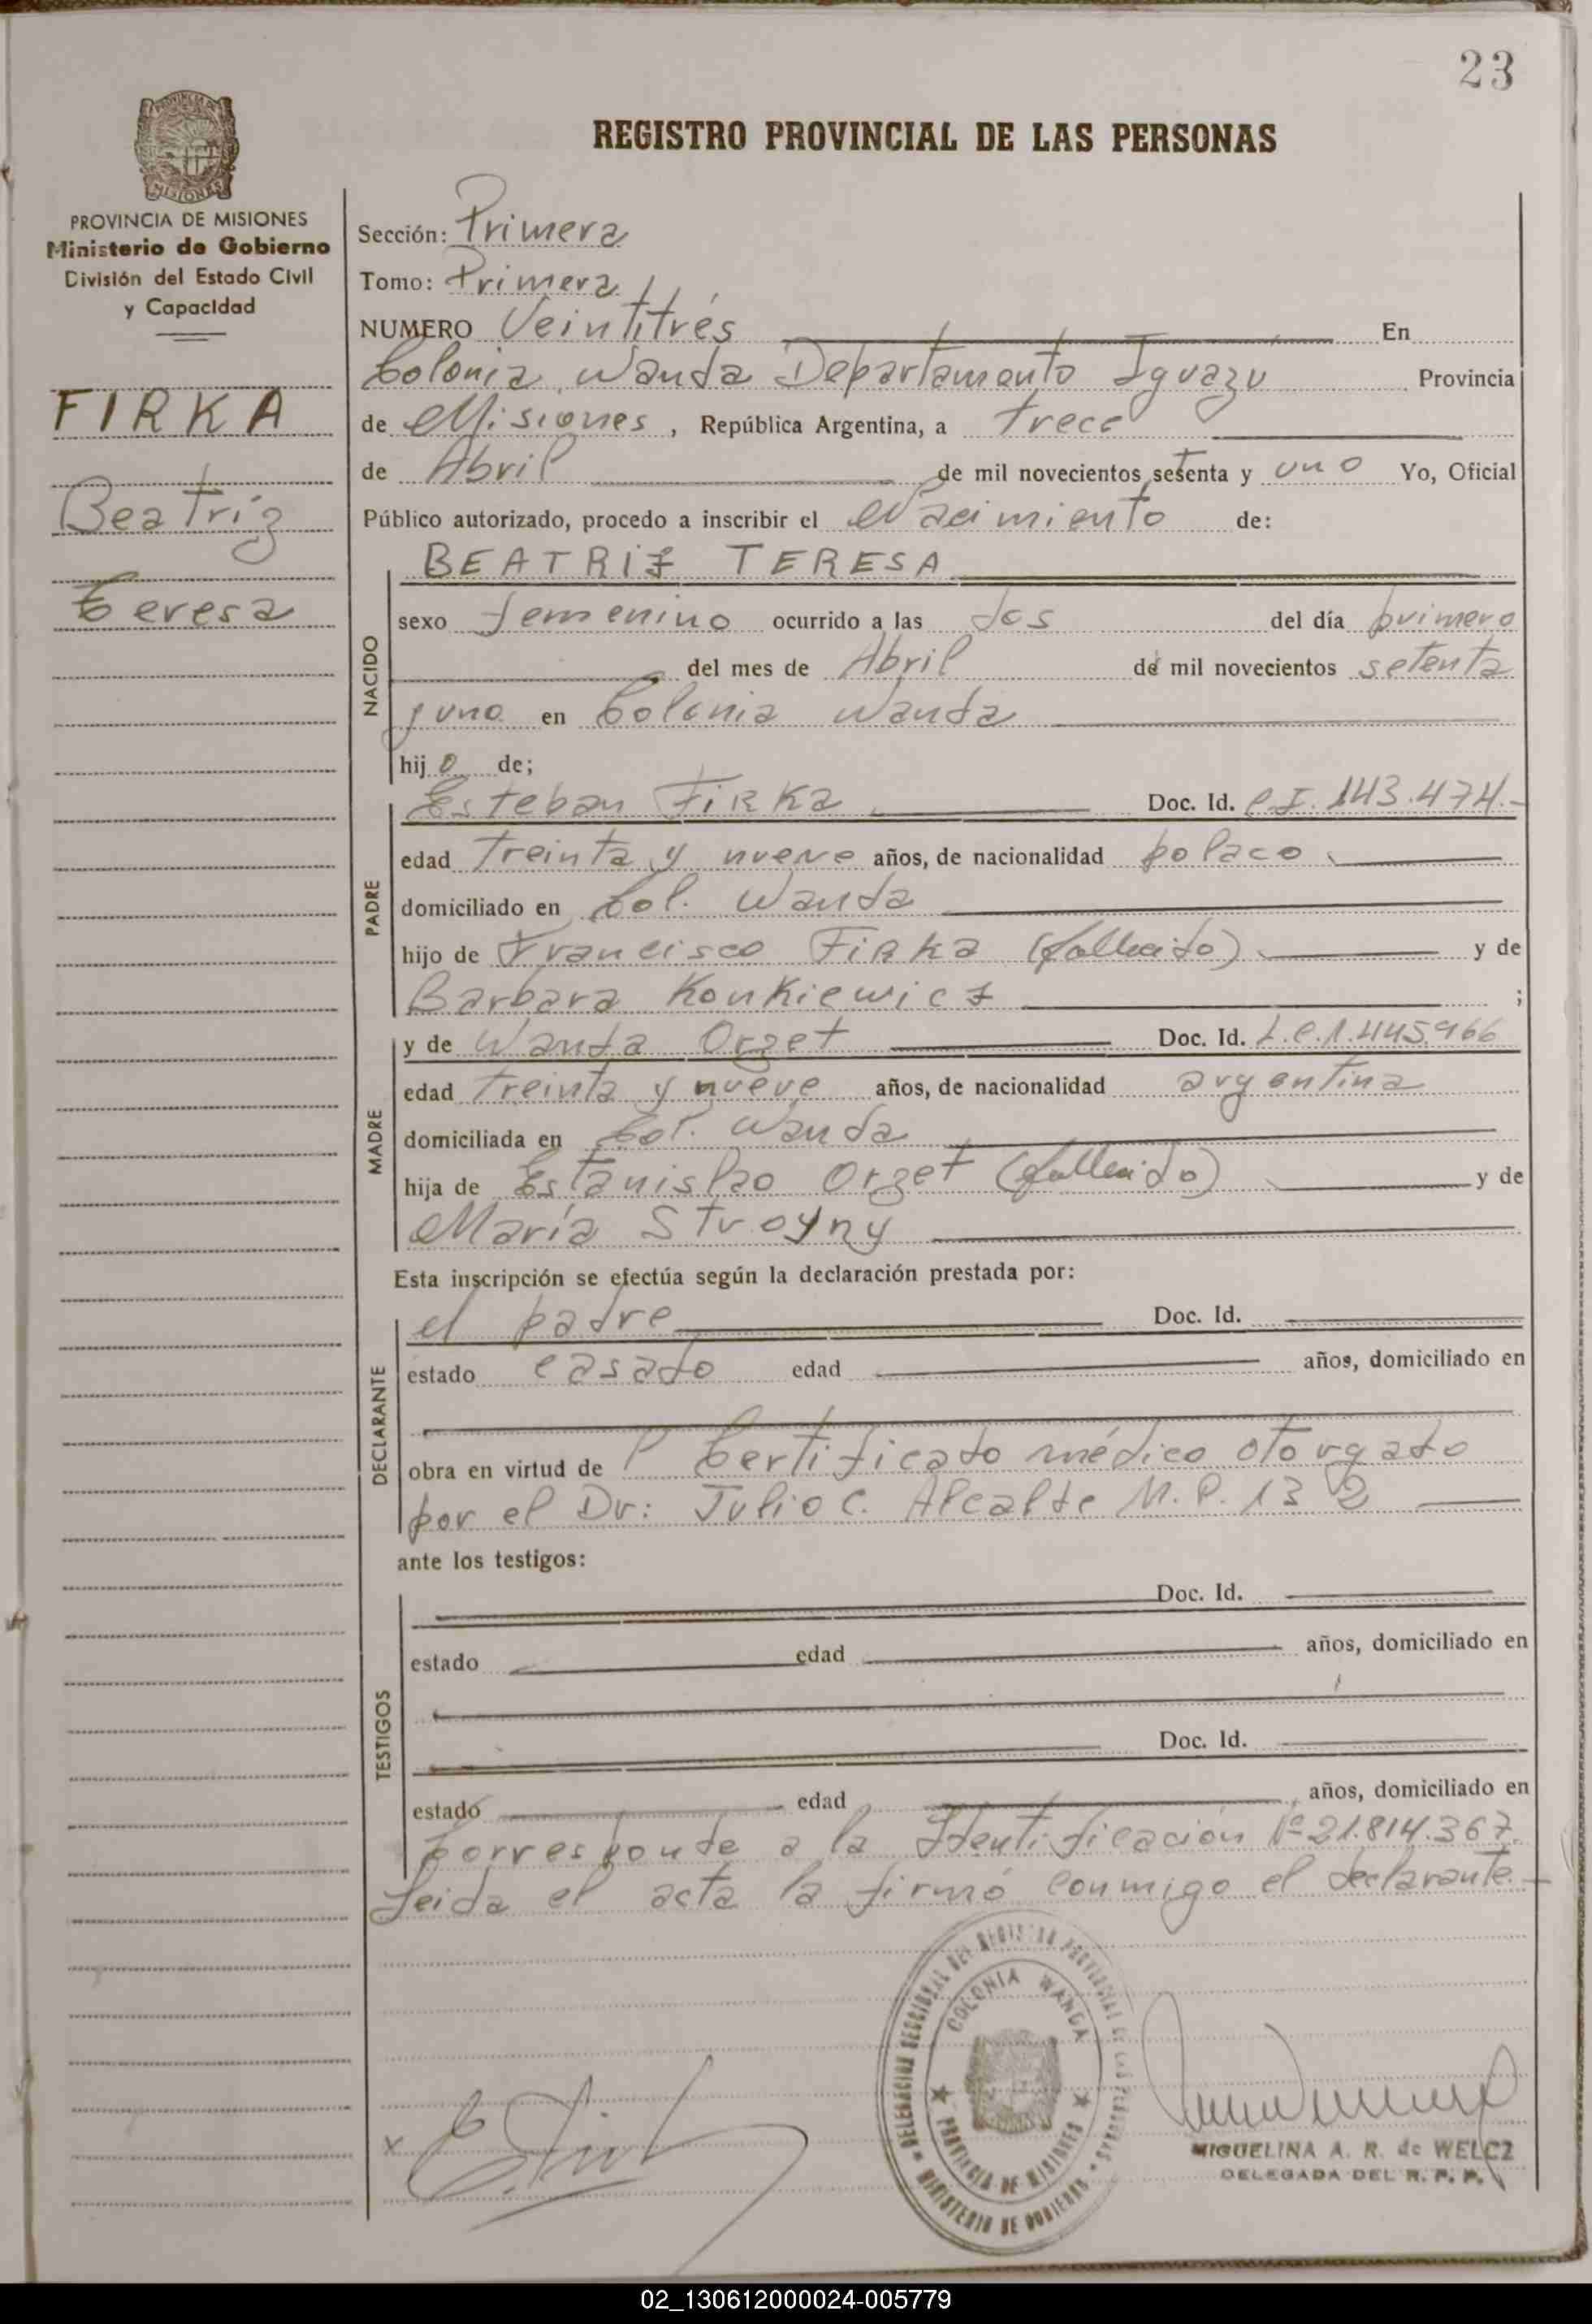 23
REGISTRO PROVINCIAL DE LAS PERSONAS
PROVINCIA DE MISIONES
Ministerio de Gobierno
División del Estado Civil
y Capacidad
FIRKA
Beatriz
Teresa
Sección: Primera
Tomo: Primera
NUMERO Veintitrés En
Colonia Wanda Departamento Iguazú Provincia
de Misiones, República Argentina, a trece
de Abril de mil novecientos setenta y uno Yo, Oficial
Público autorizado, procedo a inscribir el Nacimiento de:
NACIDO
BEATRIZ TERESA
sexo femenino ocurrido a las dos del día primero
del mes de Abril de mil novecientos setenta
y uno en Colonia Wanda
hijo de;
PADRE
Esteban FIRKa Doc. Id. C.I. 143.474.-
edad treinta y nueve años, de nacionalidad polaco
domiciliado en Col. Wanda
hijo de Francisco FIRKa (fallecido) y de
Barbara Konkiewicz ;
MADRE
y de Wanda Orzet Doc. Id. L.C.1.445.966
edad treinta y nueve años, de nacionalidad argentina
domiciliada en Col. Wanda
hija de Estanislao Orzet (fallecido) y de
María Stroyny
Esta inscripción se efectúa según la declaración prestada por:
DECLARANTE
el padre Doc. Id.
estado casado edad años, domiciliado en
obra en virtud de Certificado médico otorgado
por el Dr: Julio C. Alcalde M.P. 132
ante los testigos:
TESTIGOS
Doc. Id.
estado edad años, domiciliado en
Doc. Id.
estado edad años, domiciliado en
Corresponde a la Identificación Nº 21.814.367.
Leida el acta la firmó conmigo el declarante.-
DELEGACION SECCIONAL DEL REGISTRO PROVINCIAL DE LAS PERSONAS
COLONIA WANDA
PROVINCIA DE MISIONES
MINISTERIO DE GOBIERNO
MIGUELINA A. R. de WELCZ
DELEGADA DEL R. P. P.
02_130612000024-005779